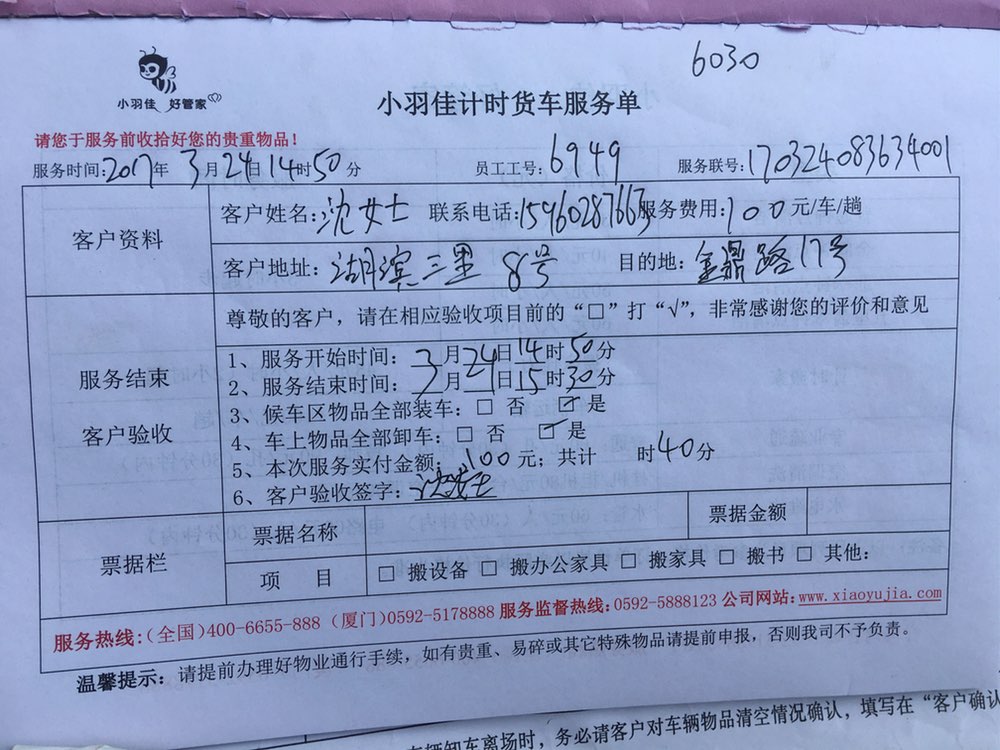 6030
小羽佳 好管家
小羽佳计时货车服务单
请您于服务前收拾好您的贵重物品！
服务时间:2017年 3月24日14时50分 员工工号:6949 服务联号:170324083634001
客户资料
客户姓名:沈女士 联系电话:15960287663服务费用:100元/车/趟
客户地址: 湖滨三里 8号 目的地:金鼎路17号
服务结束
客户验收
尊敬的客户，请在相应验收项目前的“□”打“√”，非常感谢您的评价和意见
1、服务开始时间: 3月24日14时50分
2、服务结束时间: 3月24日15时30分
3、候车区物品全部装车:□ 否 ☑ 是
4、车上物品全部卸车:□ 否 ☑ 是
5、本次服务实付金额: 100元; 共计 时40分
6、客户验收签字: 沈女士
票据栏
票据名称 票据金额
项 目 □ 搬设备 □ 搬办公家具 □ 搬家具 □ 搬书 □ 其他:
服务热线:(全国)400-6655-888 (厦门)0592-5178888 服务监督热线:0592-5888123 公司网站:www.xiaoyujia.com
温馨提示: 请提前办理好物业通行手续，如有贵重、易碎或其它特殊物品请提前申报，否则我司不予负责。
车辆卸车离场时，务必请客户对车辆物品清空情况确认，填写在“客户确认